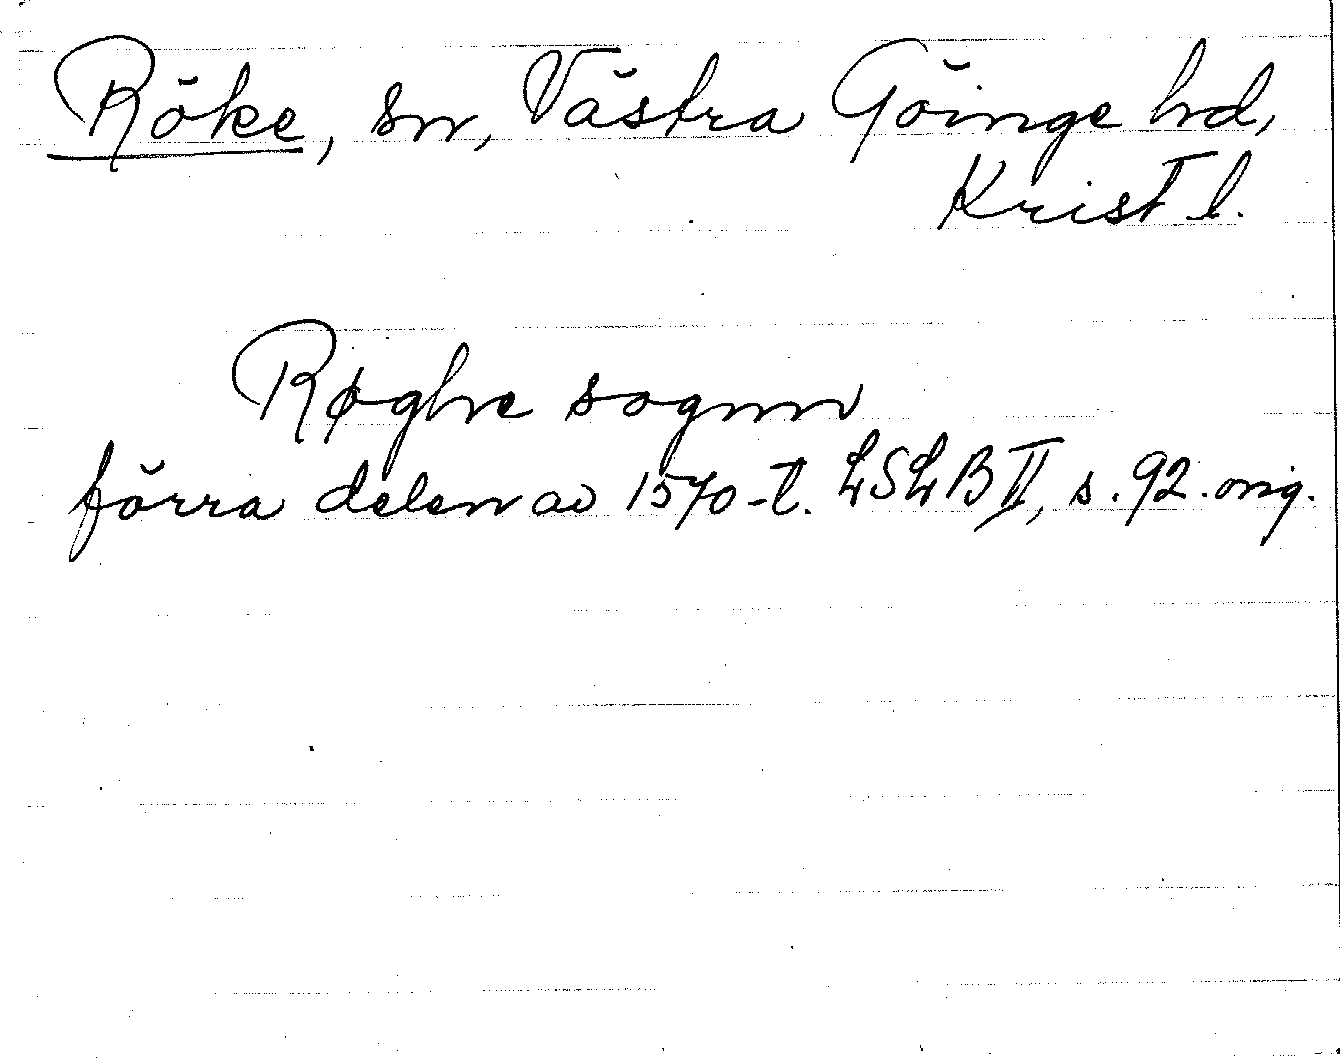 Röke, sn, Västra Göinge hd,
Krist l.
Røghe sognn
förra delen av 1570-t. LSLB II, s. 92. orig.